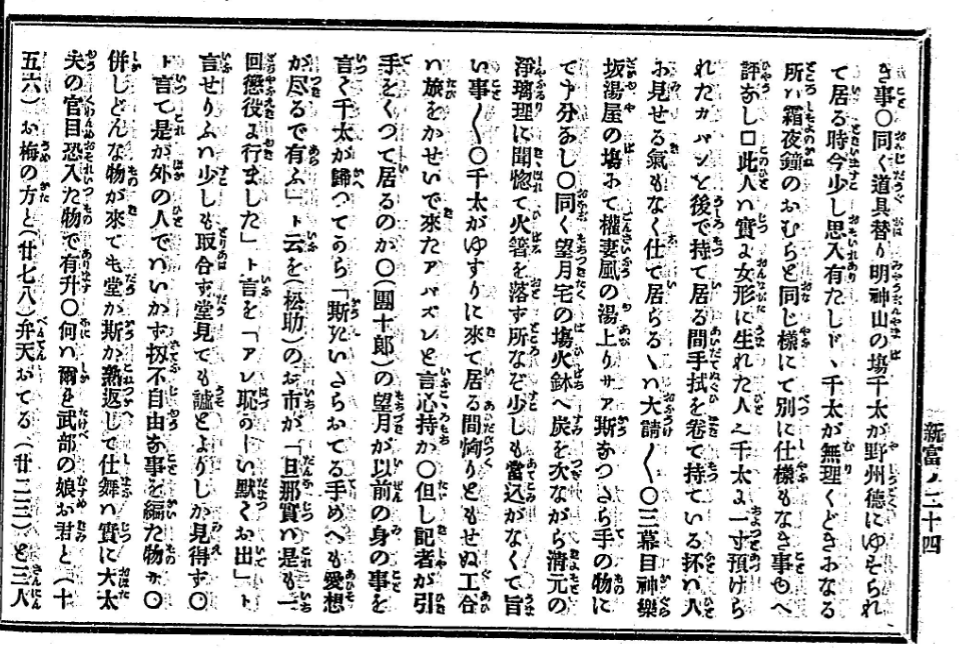 き事〇同く道具替り明神山の塲千太が野州徳にゆすられ
て居る時今少し思入有たしドヽ千太が無理くどきおなる
所ハ霜夜鐘のおむらと同じ様にて別に仕様もなき事もへ
評なし□此人ハ實よ女形に生れた人千太よ一寸預けら
れたカバンを後で持て居る間手拭を巻て持ている抔ハ人
お見せる氣もなく仕て居らるヽハ大請〳〵〇三幕目神樂
坂湯屋の塲おて權妻風の湯上りサア斯なつたら手の物に
て十分なし〇同く望月宅の塲火鉢へ炭を次ながら清元の
淨瑠理に聞惚て火箸を落す所など少しも當込がなくて旨
い事〳〵〇千太がゆすりに來て居る間恟りともせぬ工合
ハ旅をかせいで來たアバズレと言心持か〇但し記者が引
手をくつて居るのか〇(團十郎)の望月が以前の身の事を
言く千太が歸つてから「斯死いさらおてる手めへも愛想
が尽るで有ふ」ト云を(松助)のお市が「旦那賞ハ是も一
回懲役よ行ました」ト言を「アレ恥かしい默くお出」ト
言せりふハ少しも取合ず堂見ても譃とよりしか見得ず〇
ト言て是が外の人でハいかず扨不自由な事を編た物サ〇
併しどんな物が來ても堂か斯か熟返して仕舞ハ實に大太
夫の官目恐入た物で有升〇何ハ爾を武部の娘お君と(十
五六)お梅の方と(廿七八)弁天おてる(廿二三)と三人
新富ノ二十四